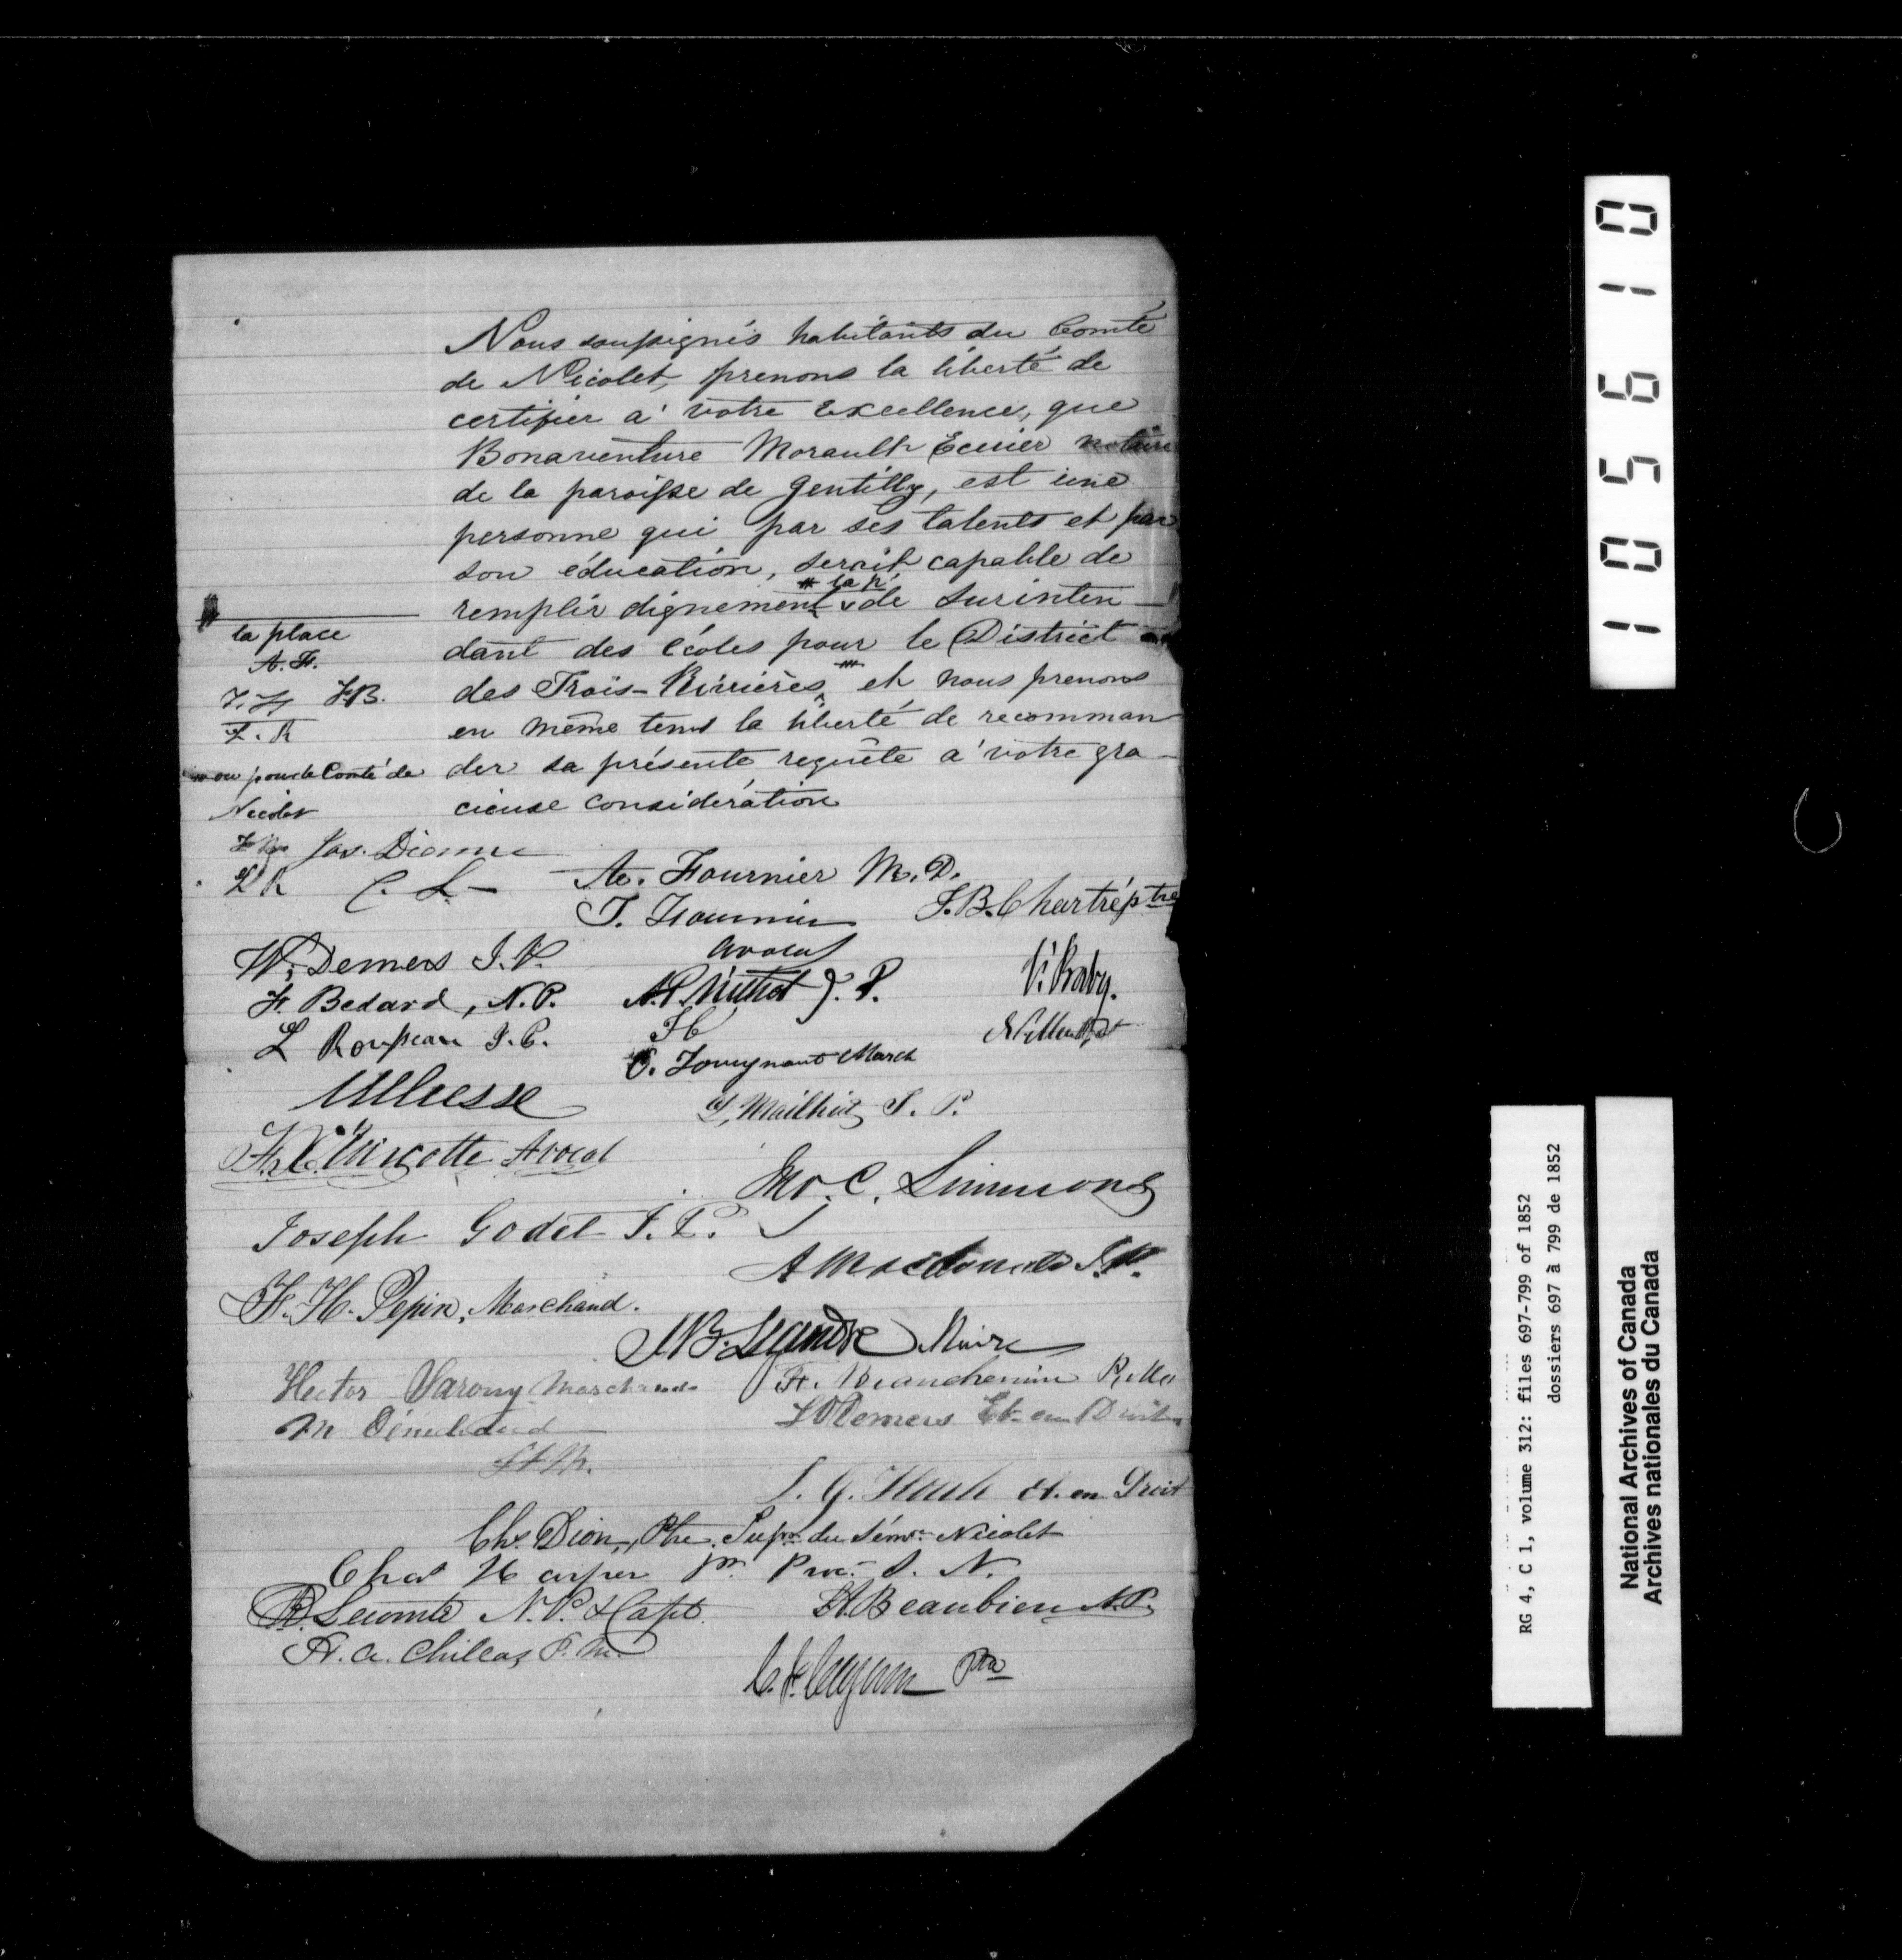 Nous soussignés habitants du Comté
de Nicolet, prenons la liberté de
certifier a' votre Excellence, que
Bonaventure Morault Ecuier notaire
de la paroisse de Gentilly, est une
personne qui par ses talents et par
son éducation, serait capable de
remplir dignement de Surinten
dant des écoles pour le District
des Trois-Rivières, et nous prenons
en même tems la liberté de recomman
der sa présente requête a' votre gra-
cieuse considération
la place
A. F.
F.B.
L. R
ou pour le Comté de
Nicolet
Jos. Dionne
L R C. L.
Ae. Fournier M. D.
T. Fournier
avocat
J. B. Chartré ptre
W. Demers J. P.
F. Bedard, N. P.
J. P.
V. Baby.
L Rousseau J. P.
March
G, Mailhiot J. P.
F. X. Turcotte Avocat
Jno. C. Simmons
Joseph Godet J. P.
A Macdonald J. P.
F. H. Pepin, Marchand.
Maire
Hector Marchand
L O Demers Et. en Droit
J. G. Et. en Droit
Chs. Dion, Ptre. Supr. du Sémre. Nicolet
Chas Harper Pr. Proc. S. N.
Lecomte N. P. & Capt.
Beaubien N. P.
A. a. Chillas P. M.
Ptre
1056 10
RG 4, C 1, volume 312: files 697-799 of 1852
dossiers 697 à 799 de 1852
National Archives of Canada
Archives nationales du Canada